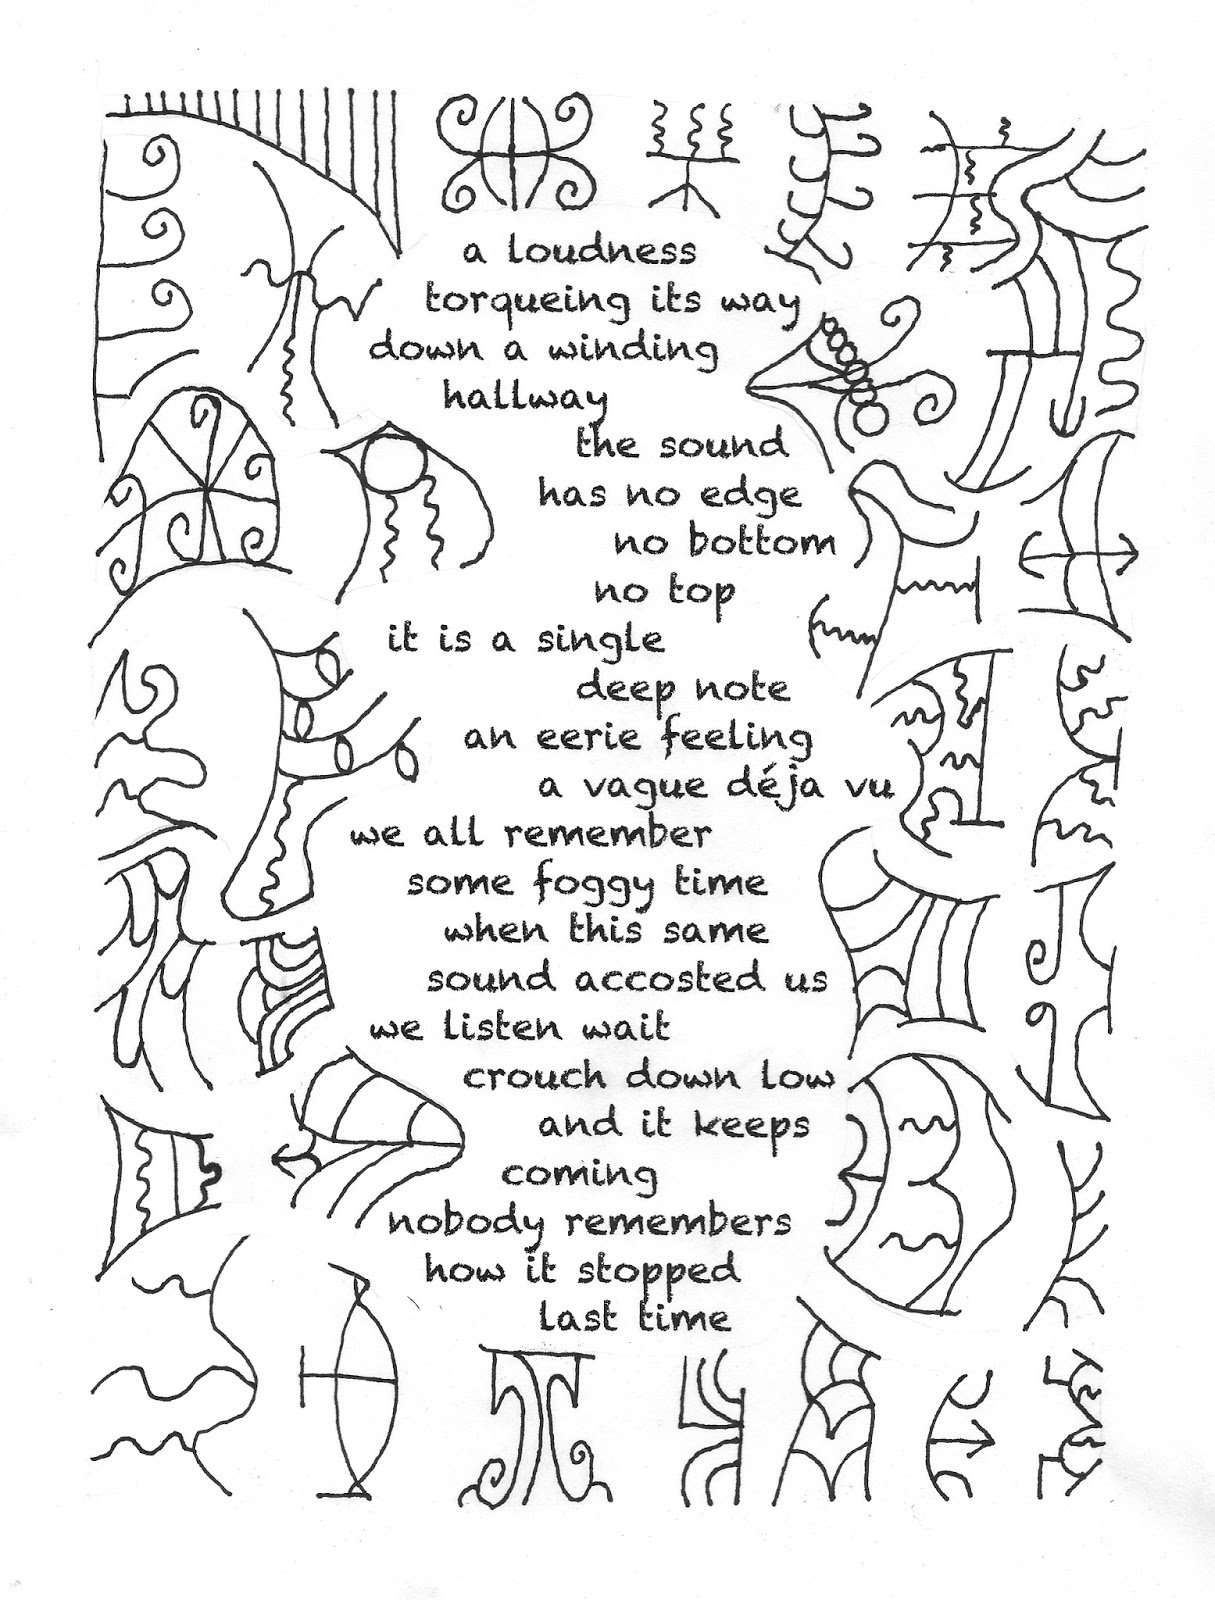 a loudness
torqueing its way
down a winding
hallway
the sound
has no edge
no bottom
no top
it is a single
deep note
an eerie feeling
a vague déja vu
we all remember
some foggy time
when this same
sound accosted us
we listen wait
crouch down low
and it keeps
coming
nobody remembers
how it stopped
last time